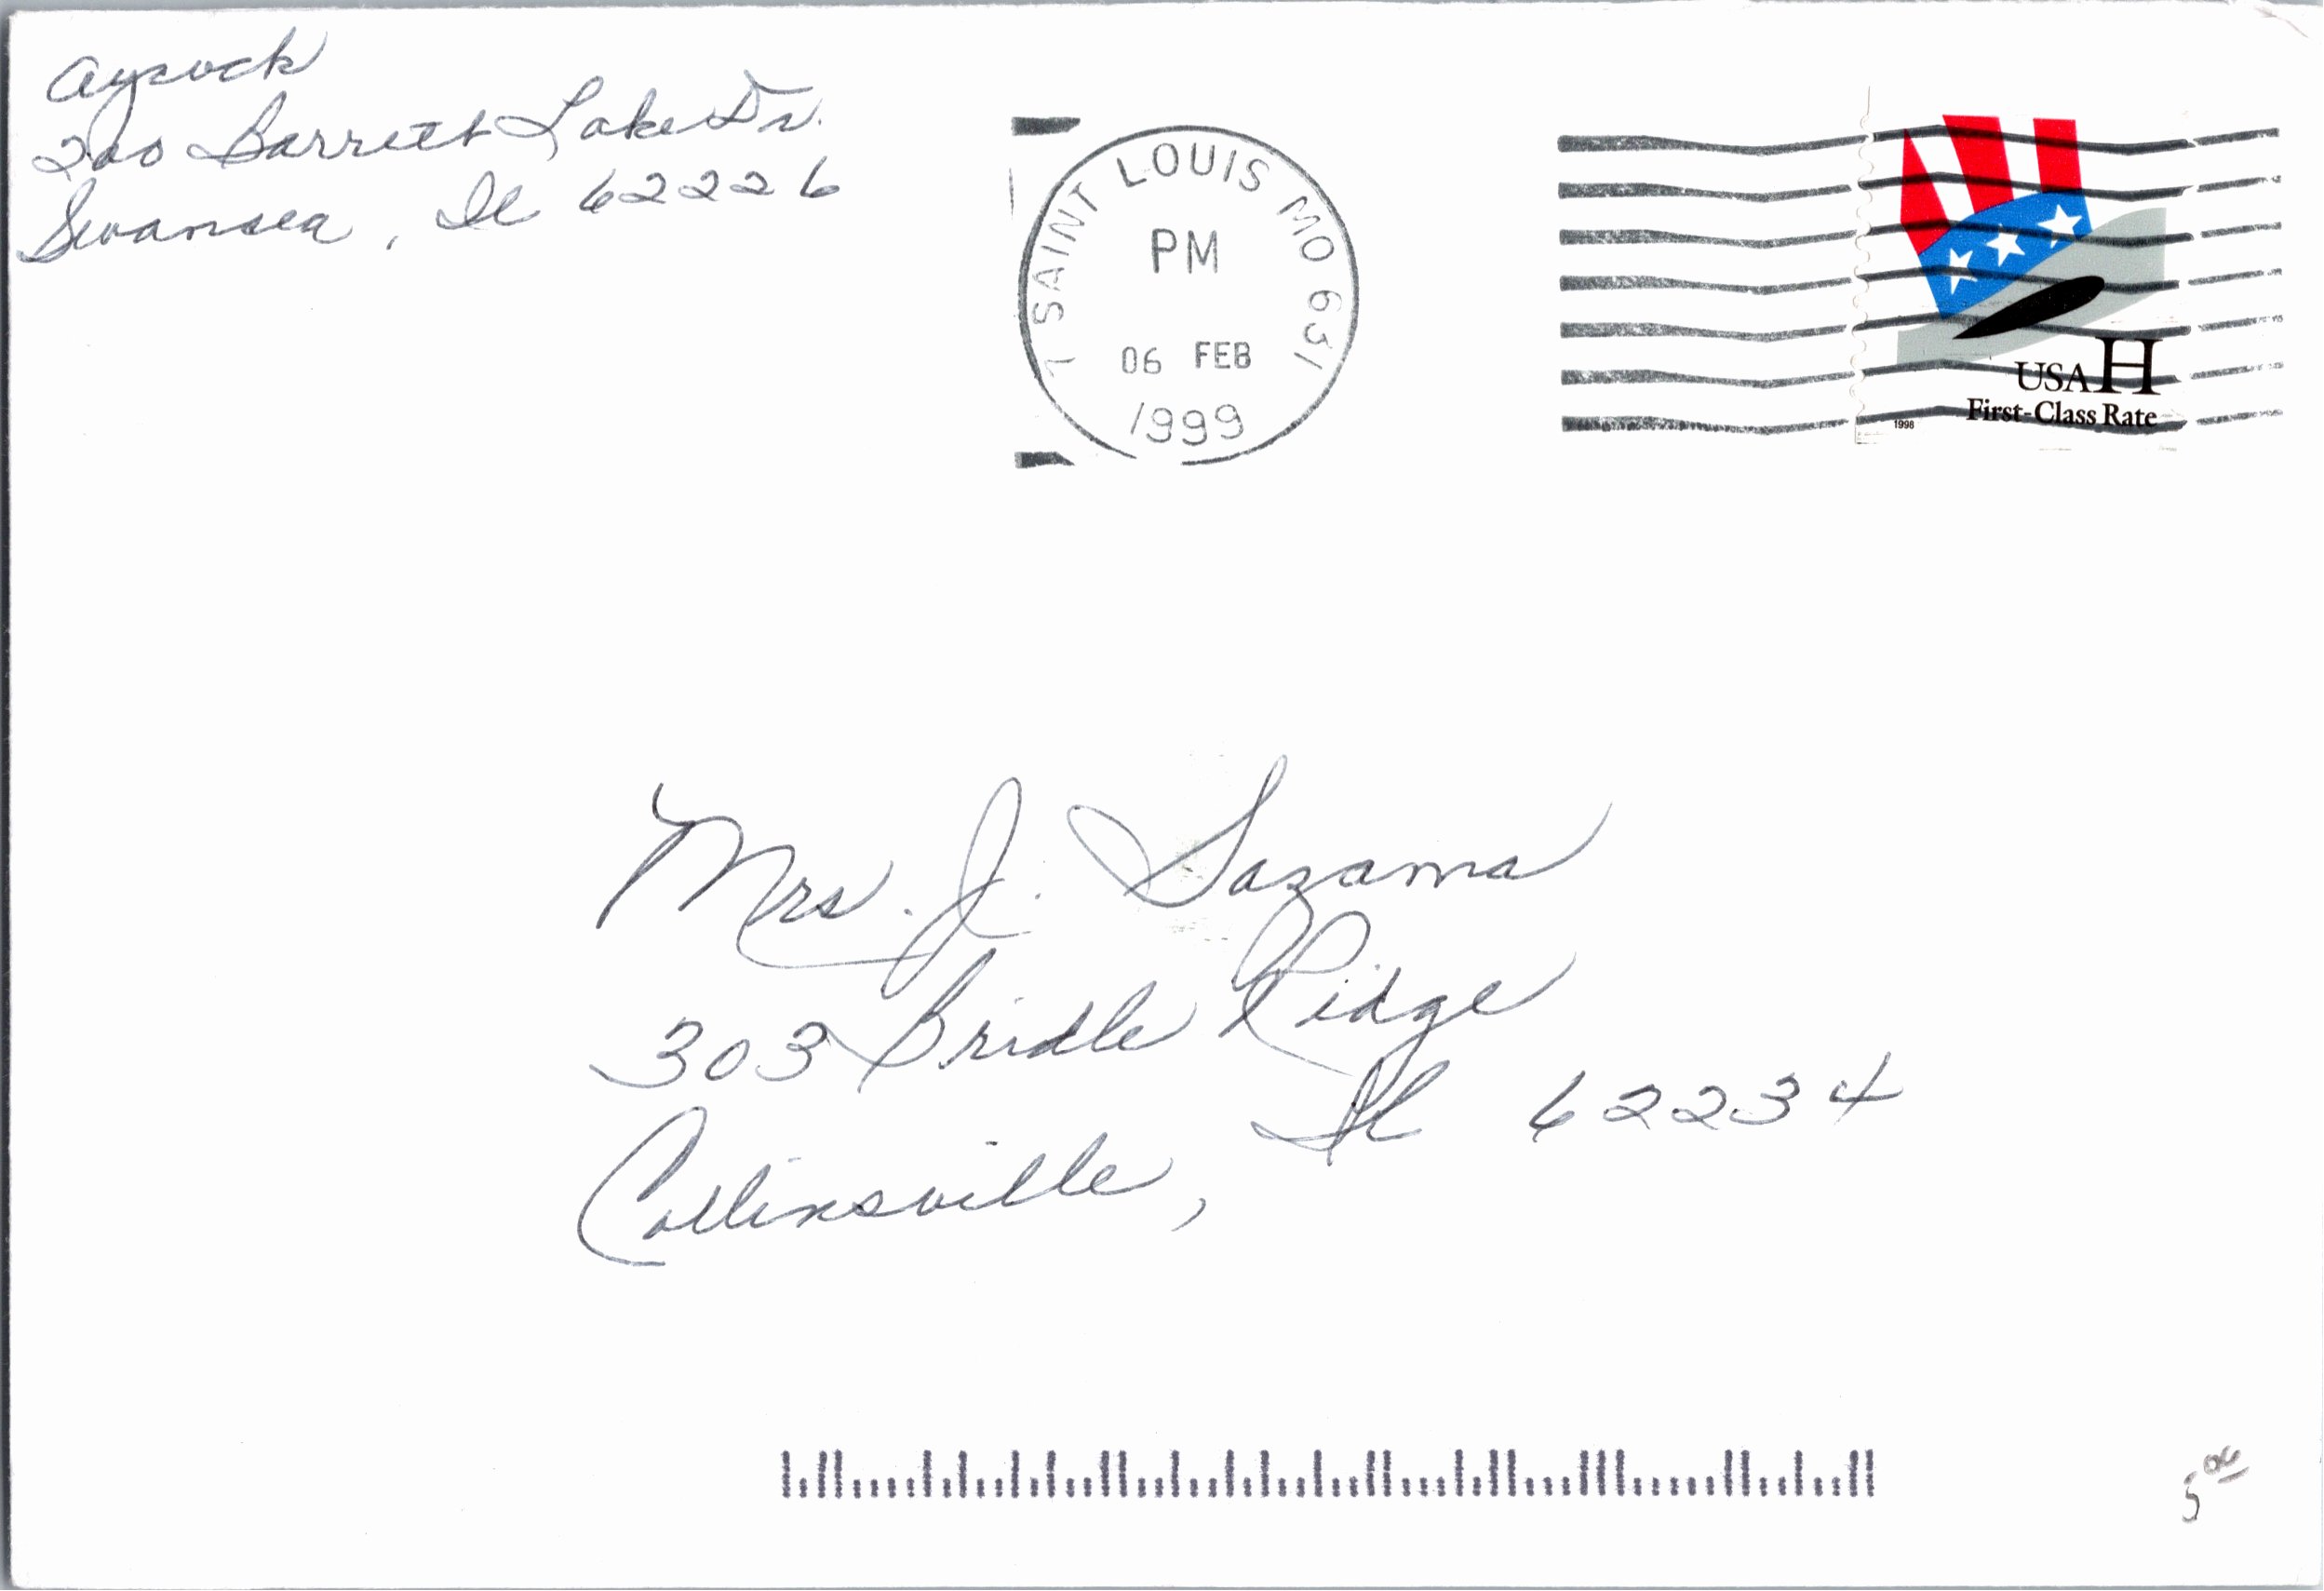 Aycock
200 Barrett Lake Dr.
Swansea, Il 62226
SAINT LOUIS MO 631
PM
06 FEB
1999
USA H
First-Class Rate
1998
Mrs. J. Sazama
303 Bridle Ridge
Collinsville, Il 62234
5 00